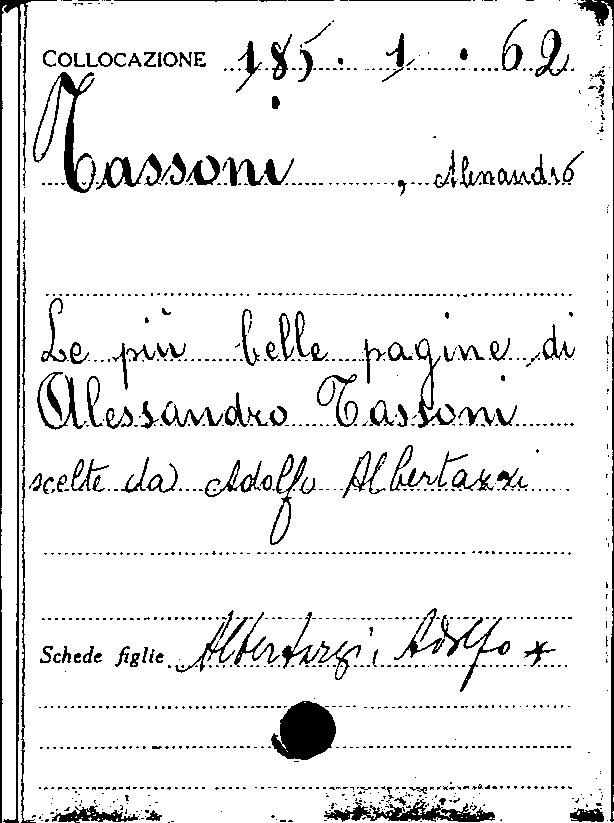 COLLOCAZIONE 185. 1. 62
Tassoni, Alessandro
Le più belle pagine di
Alessandro Tassoni
scelte da Adolfo Albertazzi
Schede figlie Albertazzi, Adolfo *